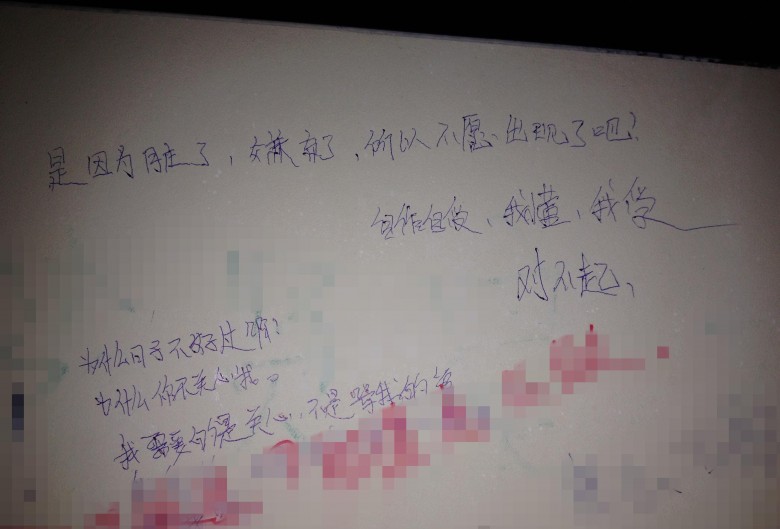 是因为脏了，嫌弃了，所以不愿出现了吧？
自作自受、我懂，我受
对不起、
为什么日子不好过啊？
为什么你不关心我。
我需要的是关心，不是骂我的话